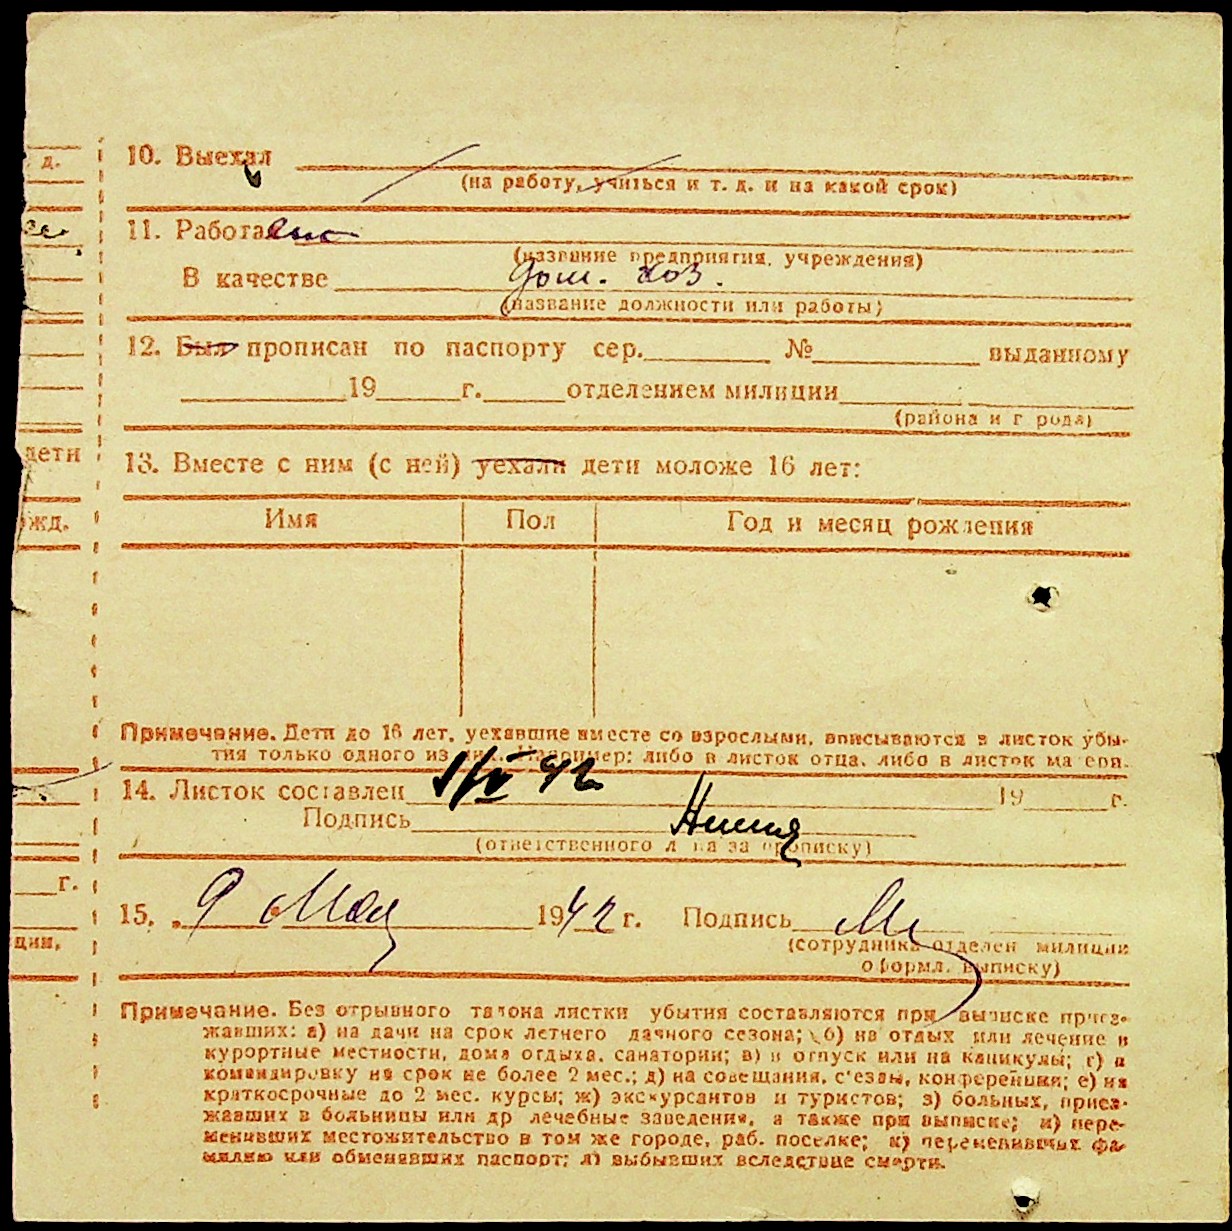 д.
10. Выехал
(на работу, учиться и т. д. и на какой срок)
11. Работал
(название предприятия, учреждения)
В качестве дом. хоз.
(название должности или работы)
12. Был прописан по паспорту сер. № выданному
19 г. отделением милиции
(района и г рода)
дети
13. Вместе с ним (с ней) уехали дети моложе 16 лет:
жд.
Имя Пол Год и месяц рождения
Примечание. Дети до 16 лет, уехавшие вместе со взрослыми, вписываются в листок убы-
тия только одного из них. Например: либо в листок отца, либо в листок матери.
14. Листок составлен 9/V 42 19 г.
Подпись
(ответственного лица за прописку)
г.
15. „9 Мая 1942 г. Подпись
ции,
(сотрудника отделен милиции
оформл. выписку)
Примечание. Без отрывного талона листки убытия составляются при выписке приез-
жавших: а) на дачи на срок летнего дачного сезона; б) на отдых или лечение в
курортные местности, дома отдыха, санатории; в) в отпуск или на каникулы; г) в
командировку на срок не более 2 мес.; д) на совещания, с'езды, конференции; е) на
краткосрочные до 2 мес. курсы; ж) экскурсантов и туристов; з) больных, приез-
жавших в больницы или др лечебные заведения, а также при выписке; и) пере-
менивших местожительство в том же городе, раб. поселке; к) переменивших фа-
милию или обменявших паспорт; л) выбывших вследствие смерти.